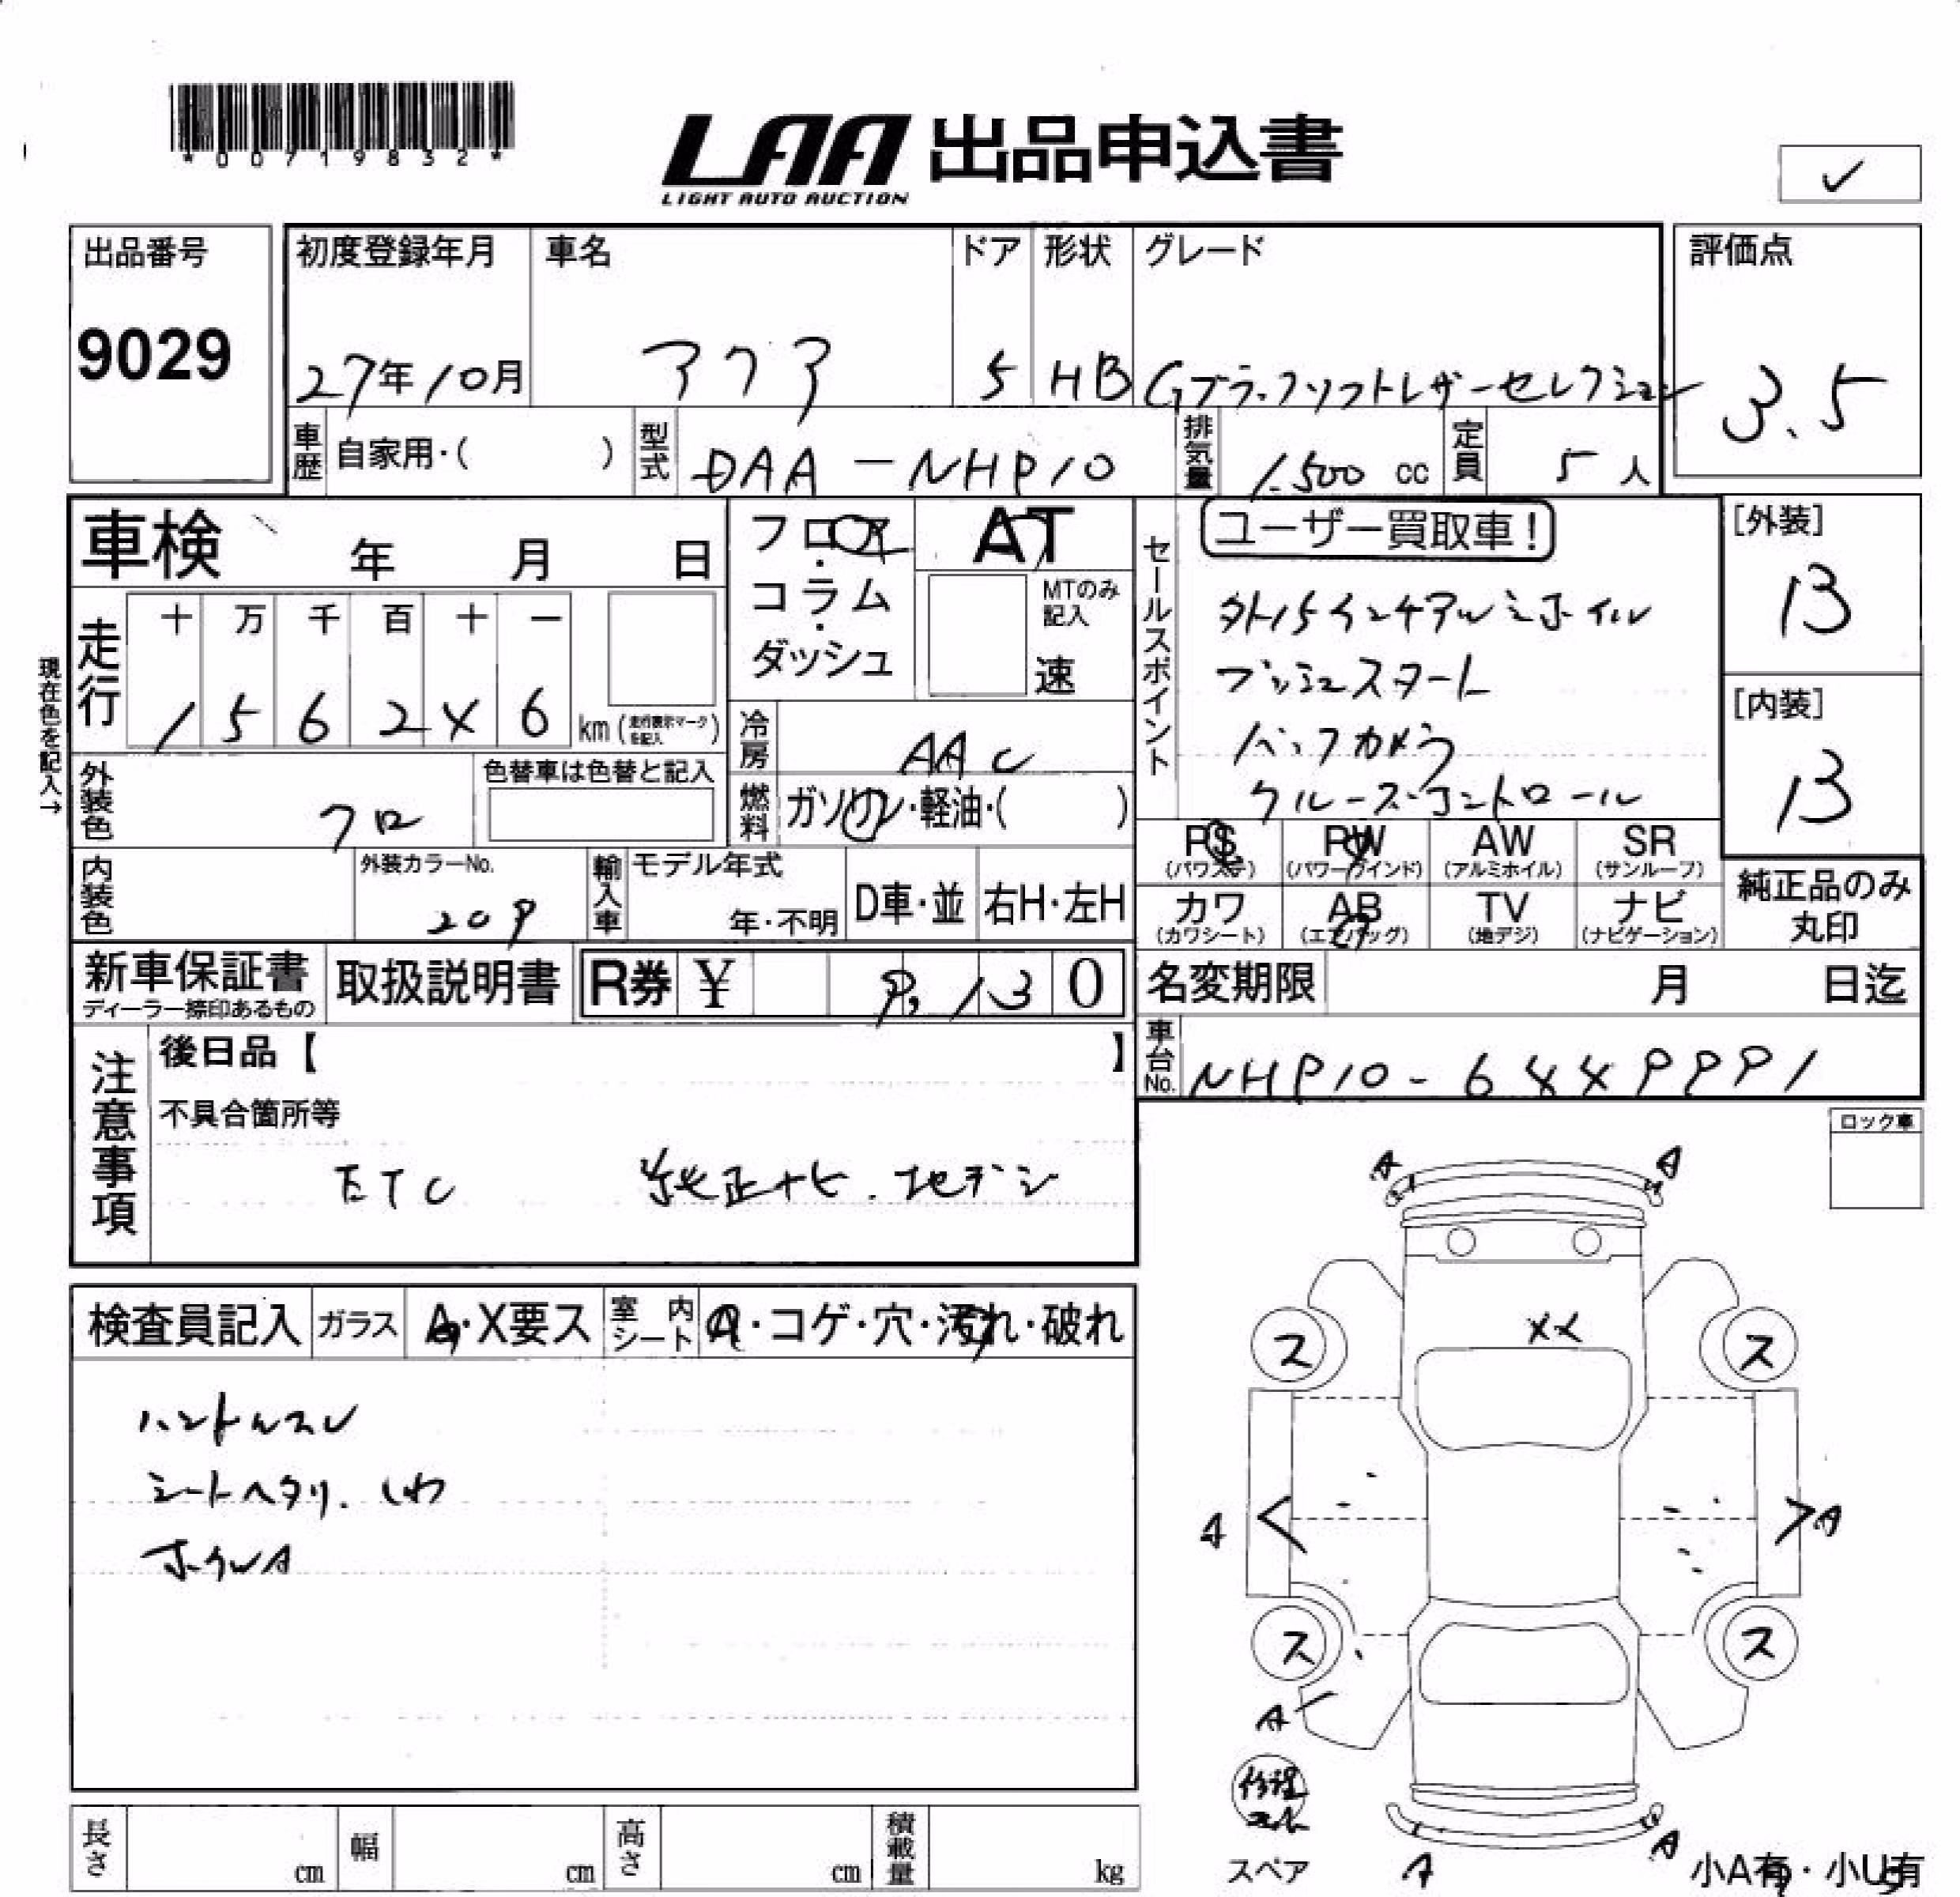 *00719832*
LAA 出品申込書
LIGHT AUTO AUCTION
✓
出品番号
9029
初度登録年月
27年10月
車名
アクア
ドア
5
形状
HB
グレード
Gブラックソフトレザーセレクション
評価点
3.5
車歴 自家用・( )
型式 DAA-NHP10
排気量 1.500 cc
定員 5 人
車検 年 月 日
フロア・コラム・ダッシュ
AT
MTのみ記入
速
セールスポイント
ユーザー買取車!
外15インチアルミホイル
プッシュスタート
バックカメラ
クルーズコントロール
[外装]
13
[内装]
13
現在色を記入→
走行
十 万 千 百 十 一
1 5 6 2 4 6 km (走行表示マークを記入)
冷房 AAC
外装色 クロ
色替車は色替と記入
燃料 ガソリン・軽油・( )
PS (パワステ)
PW (パワーウインド)
AW (アルミホイル)
SR (サンルーフ)
内装色
外装カラーNo.
209
輸入車
モデル年式
年・不明
D車・並
右H・左H
カワ (カワシート)
AB (エアバッグ)
TV (地デジ)
ナビ (ナビゲーション)
純正品のみ丸印
新車保証書
ディーラー捺印あるもの
取扱説明書
R券 ¥ 9,130
名変期限 月 日迄
車台No. NHP10-6449991
注意事項
後日品【 】
不具合箇所等
ETC 純正ナビ.地デジ
ロック車
検査員記入
ガラス A・X要ス
室内シート A・コゲ・穴・汚れ・破れ
ハンドルスレ
シートヘタリ.シワ
ホイルA
A A
XX
ス ス
A A
ス ス
A
スペア
A A
小A有・小U有
長さ cm
幅 cm
高さ cm
積載量 kg